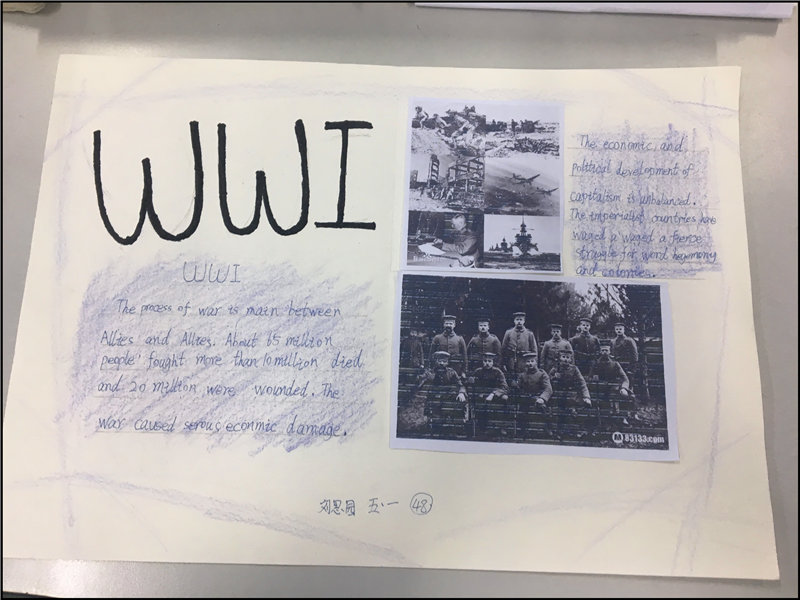 WWI
WWI
The process of war is main between
Allies and Allies. About 65 million
people fought more than 10 million died
and 20 million were wounded. The
war caused serous econmic damage.
The economic and
political development of
capitalism is unbalanced.
The imperialist countries have
waged a waged a fierce
struggle for word hegemony
and colonies.
83133.com
刘思园 五·一 48